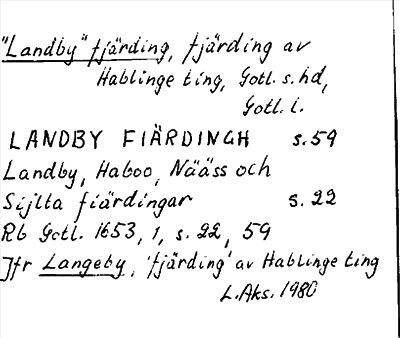 "Landby" fjärding, fjärding av
Hablinge ting, Gotl. s. hd,
Gotl. l.
LANDBY FIÄRDINGH s. 59
Landby, Haboo, Nääss och
Sijlta fiärdingar s. 22
Rb Gotl. 1653, 1, s. 22, 59
Jfr Langeby, 'fjärding' av Hablinge ting
L. Aks. 1980